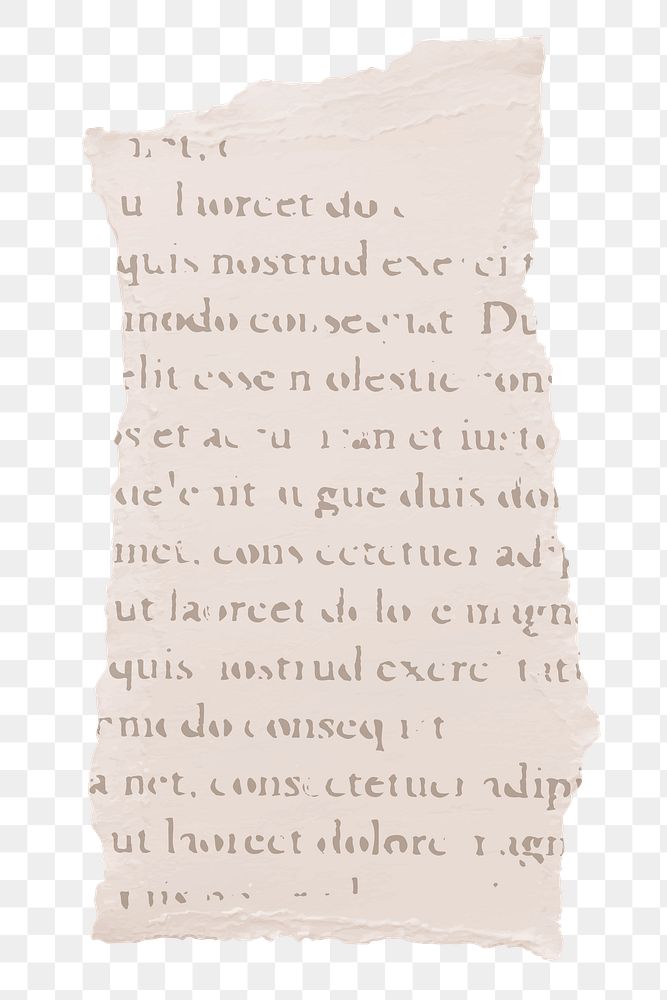 u laoreet do
quis nostrud exerci t
modo consequat Du
elit esse molestie cons
os et accu msan et iusto
delenit augue duis dol
met, consectetuer adip
ut laoreet dolore magna
quis nostrud exerci tati
modo consequat
amet, consectetuer adipi
ut laoreet dolore magn